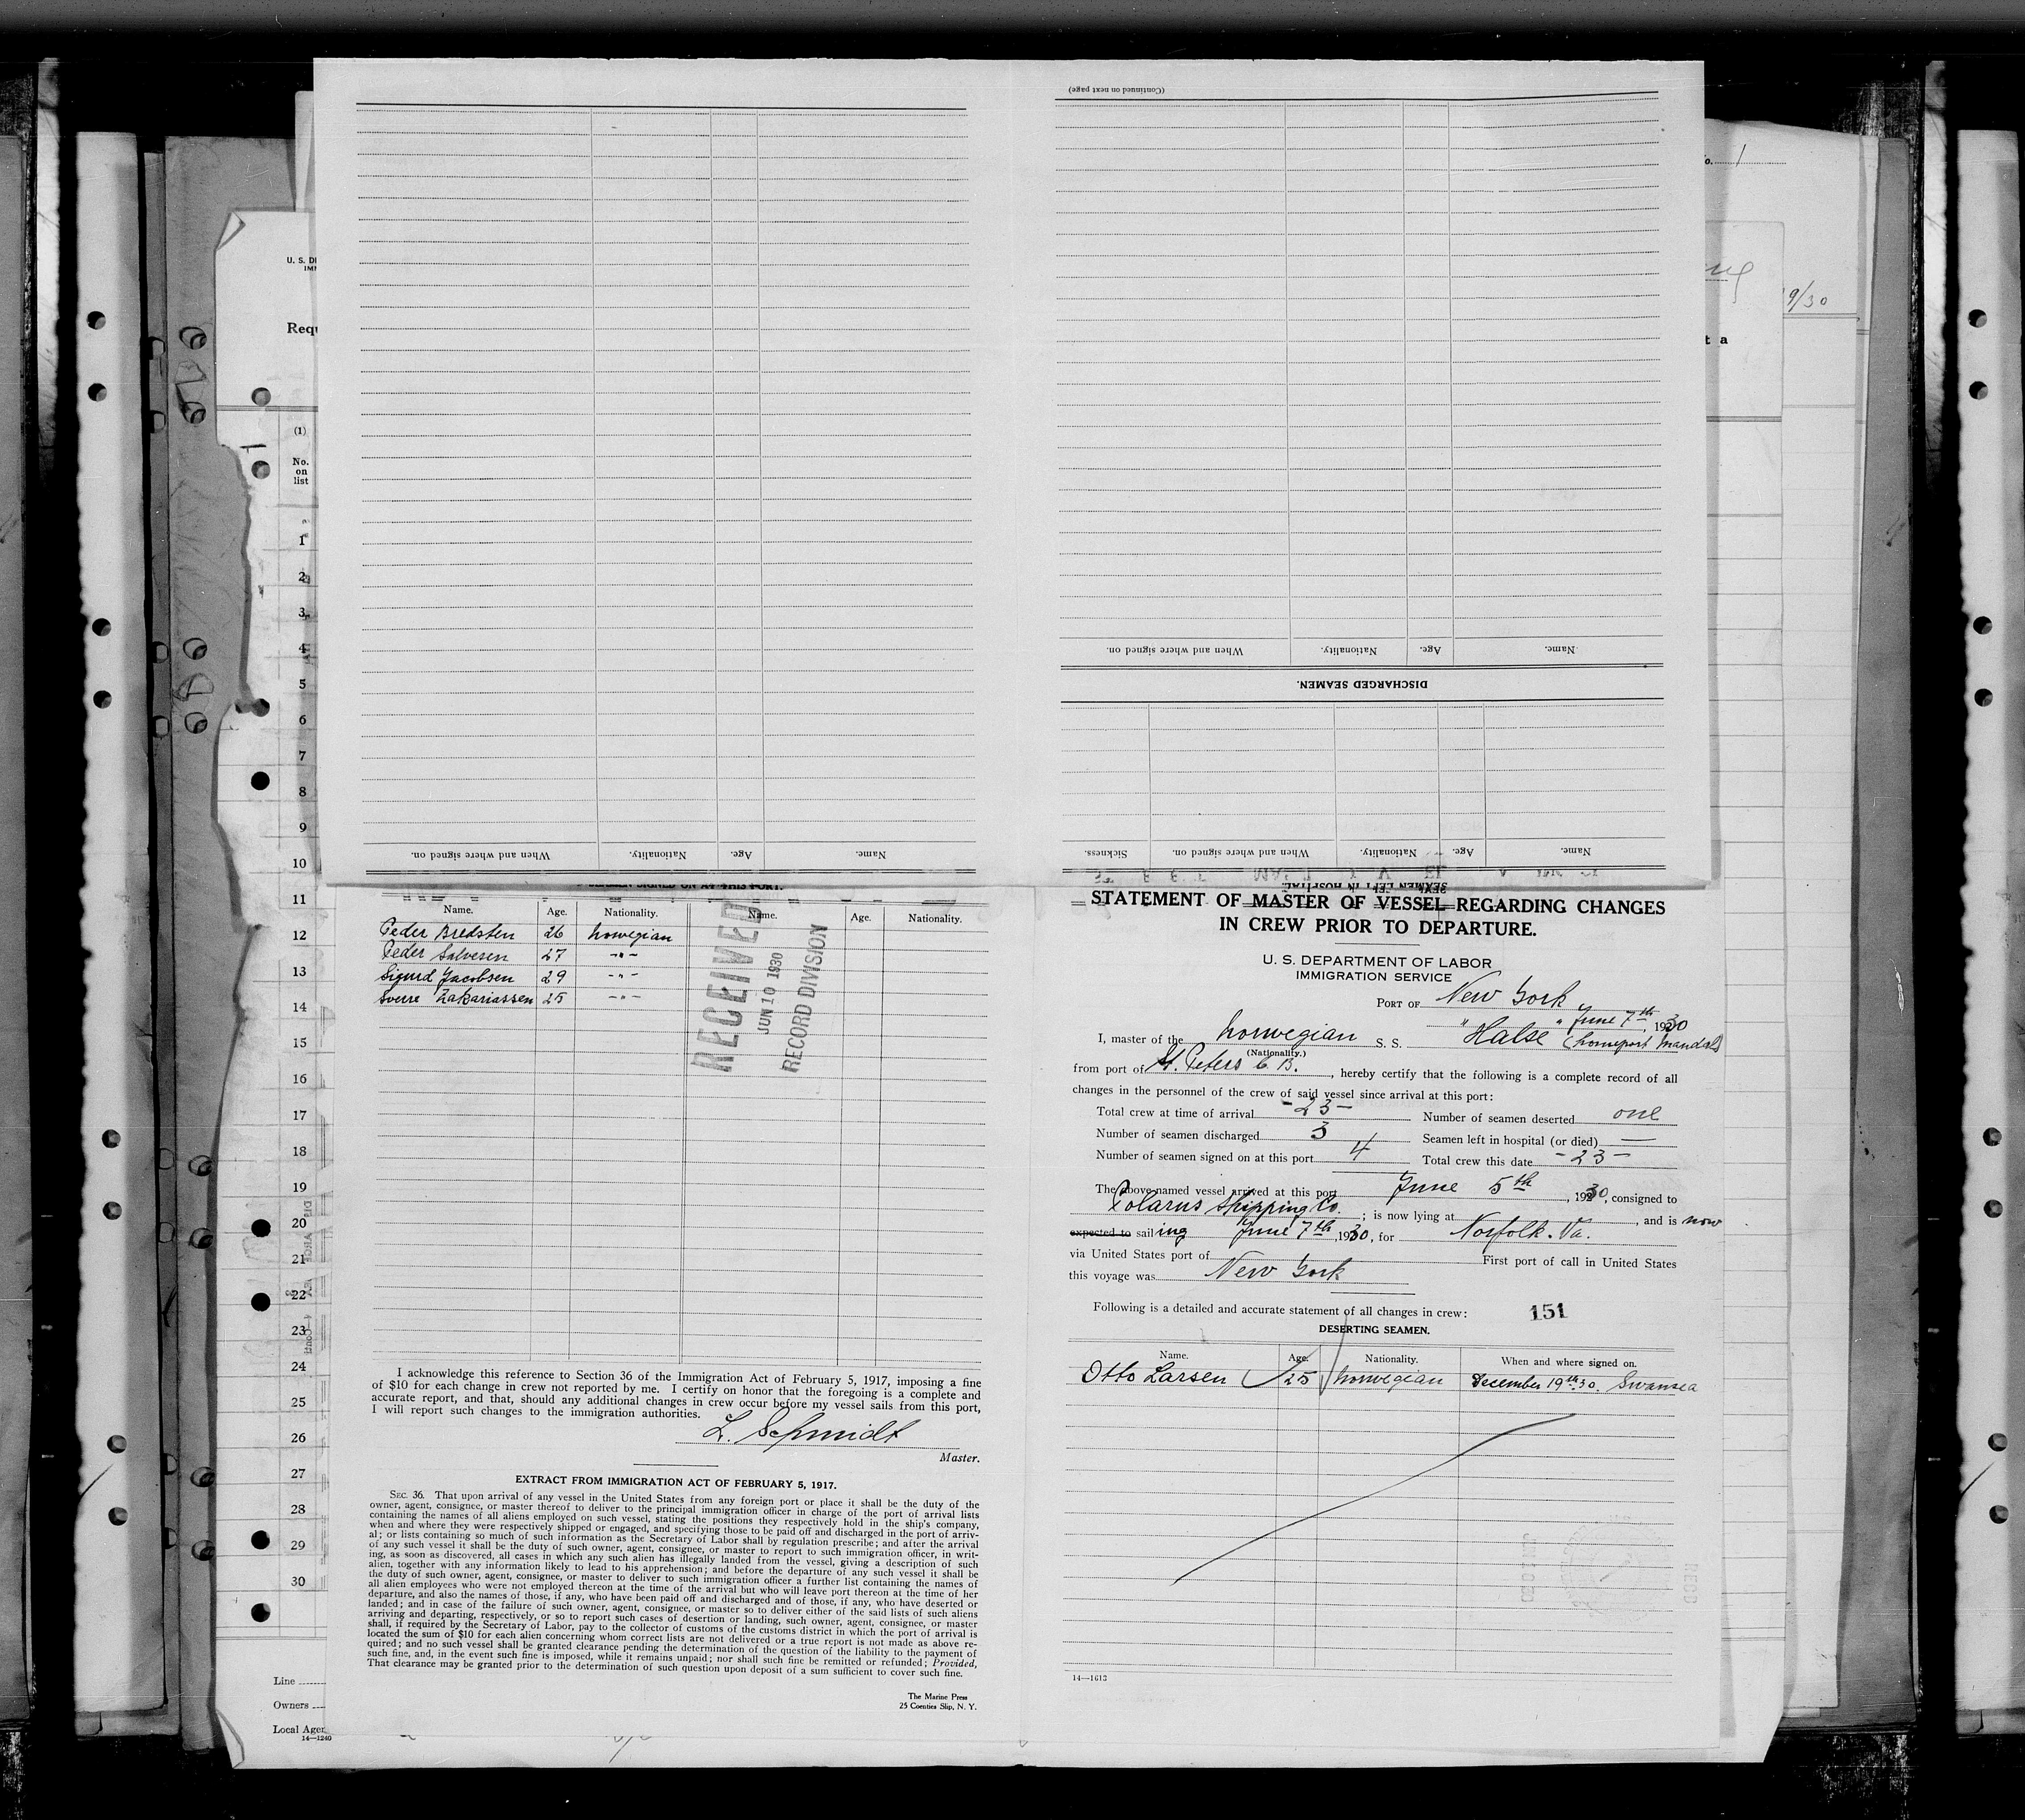 (Continued on next page)
Name. Age. Nationality. When and where signed on.
DISCHARGED SEAMEN.
Name. Age. Nationality. When and where signed on. Sickness.
SEAMEN LEFT IN HOSPITAL
Name. Age. Nationality. When and where signed on.
U. S. DE
IMM
Requ
(1)
No.
on
list
1
2
3
4
5
6
7
8
9
10
11
12
13
14
15
16
17
18
19
20
21
22
23
24
25
26
27
28
29
30
Line
Owners
Local Agen
14—1240
o. 1
9/30
t a
SEAMEN SIGNED ON AT THIS PORT.
Name. Age. Nationality. Name. Age. Nationality.
Peder Bredsten 26 norwegian
Peder Salvesen 27 -"-
Sigurd Jacobsen 29 -"-
Sverre Zakariassen 25 -"-
RECEIVED
JUN 10 1930
RECORD DIVISION
I acknowledge this reference to Section 36 of the Immigration Act of February 5, 1917, imposing a fine
of $10 for each change in crew not reported by me. I certify on honor that the foregoing is a complete and
accurate report, and that, should any additional changes in crew occur before my vessel sails from this port,
I will report such changes to the immigration authorities.
L. Schmidt
Master.
EXTRACT FROM IMMIGRATION ACT OF FEBRUARY 5, 1917.
SEC. 36. That upon arrival of any vessel in the United States from any foreign port or place it shall be the duty of the
owner, agent, consignee, or master thereof to deliver to the principal immigration officer in charge of the port of arrival lists
containing the names of all aliens employed on such vessel, stating the positions they respectively hold in the ship's company,
when and where they were respectively shipped or engaged, and specifying those to be paid off and discharged in the port of arriv-
al; or lists containing so much of such information as the Secretary of Labor shall by regulation prescribe; and after the arrival
of any such vessel it shall be the duty of such owner, agent, consignee, or master to report to such immigration officer, in writ-
ing, as soon as discovered, all cases in which any such alien has illegally landed from the vessel, giving a description of such
alien, together with any information likely to lead to his apprehension; and before the departure of any such vessel it shall be
the duty of such owner, agent, consignee, or master to deliver to such immigration officer a further list containing the names of
all alien employees who were not employed thereon at the time of the arrival but who will leave port thereon at the time of her
departure, and also the names of those, if any, who have been paid off and discharged and of those, if any, who have deserted or
landed; and in case of the failure of such owner, agent, consignee, or master so to deliver either of the said lists of such aliens
arriving and departing, respectively, or so to report such cases of desertion or landing, such owner, agent, consignee, or master
shall, if required by the Secretary of Labor, pay to the collector of customs of the customs district in which the port of arrival is
located the sum of $10 for each alien concerning whom correct lists are not delivered or a true report is not made as above re-
quired; and no such vessel shall be granted clearance pending the determination of the question of the liability to the payment of
such fine, and, in the event such fine is imposed, while it remains unpaid; nor shall such fine be remitted or refunded; Provided,
That clearance may be granted prior to the determination of such question upon deposit of a sum sufficient to cover such fine.
The Marine Press
25 Coenties Slip, N. Y.
STATEMENT OF MASTER OF VESSEL REGARDING CHANGES
IN CREW PRIOR TO DEPARTURE.
U. S. DEPARTMENT OF LABOR
IMMIGRATION SERVICE
PORT OF New York
June 7th, 1930
I, master of the norwegian S. S. "Halse" (homeport Mandal)
(Nationality.)
from port of St. Peters C. B., hereby certify that the following is a complete record of all
changes in the personnel of the crew of said vessel since arrival at this port:
Total crew at time of arrival -23- Number of seamen deserted one
Number of seamen discharged 3 Seamen left in hospital (or died) —
Number of seamen signed on at this port 4 Total crew this date -23-
The above-named vessel arrived at this port June 5th, 1930, consigned to
Polarus Shipping Co. ; is now lying at , and is now
expected to sailing June 7th, 1930, for Norfolk. Va.
via United States port of First port of call in United States
this voyage was New York
Following is a detailed and accurate statement of all changes in crew: 151
DESERTING SEAMEN.
Name. Age. Nationality. When and where signed on.
Otto Larsen 25 norwegian December 19th 30. Swansea
14—1613